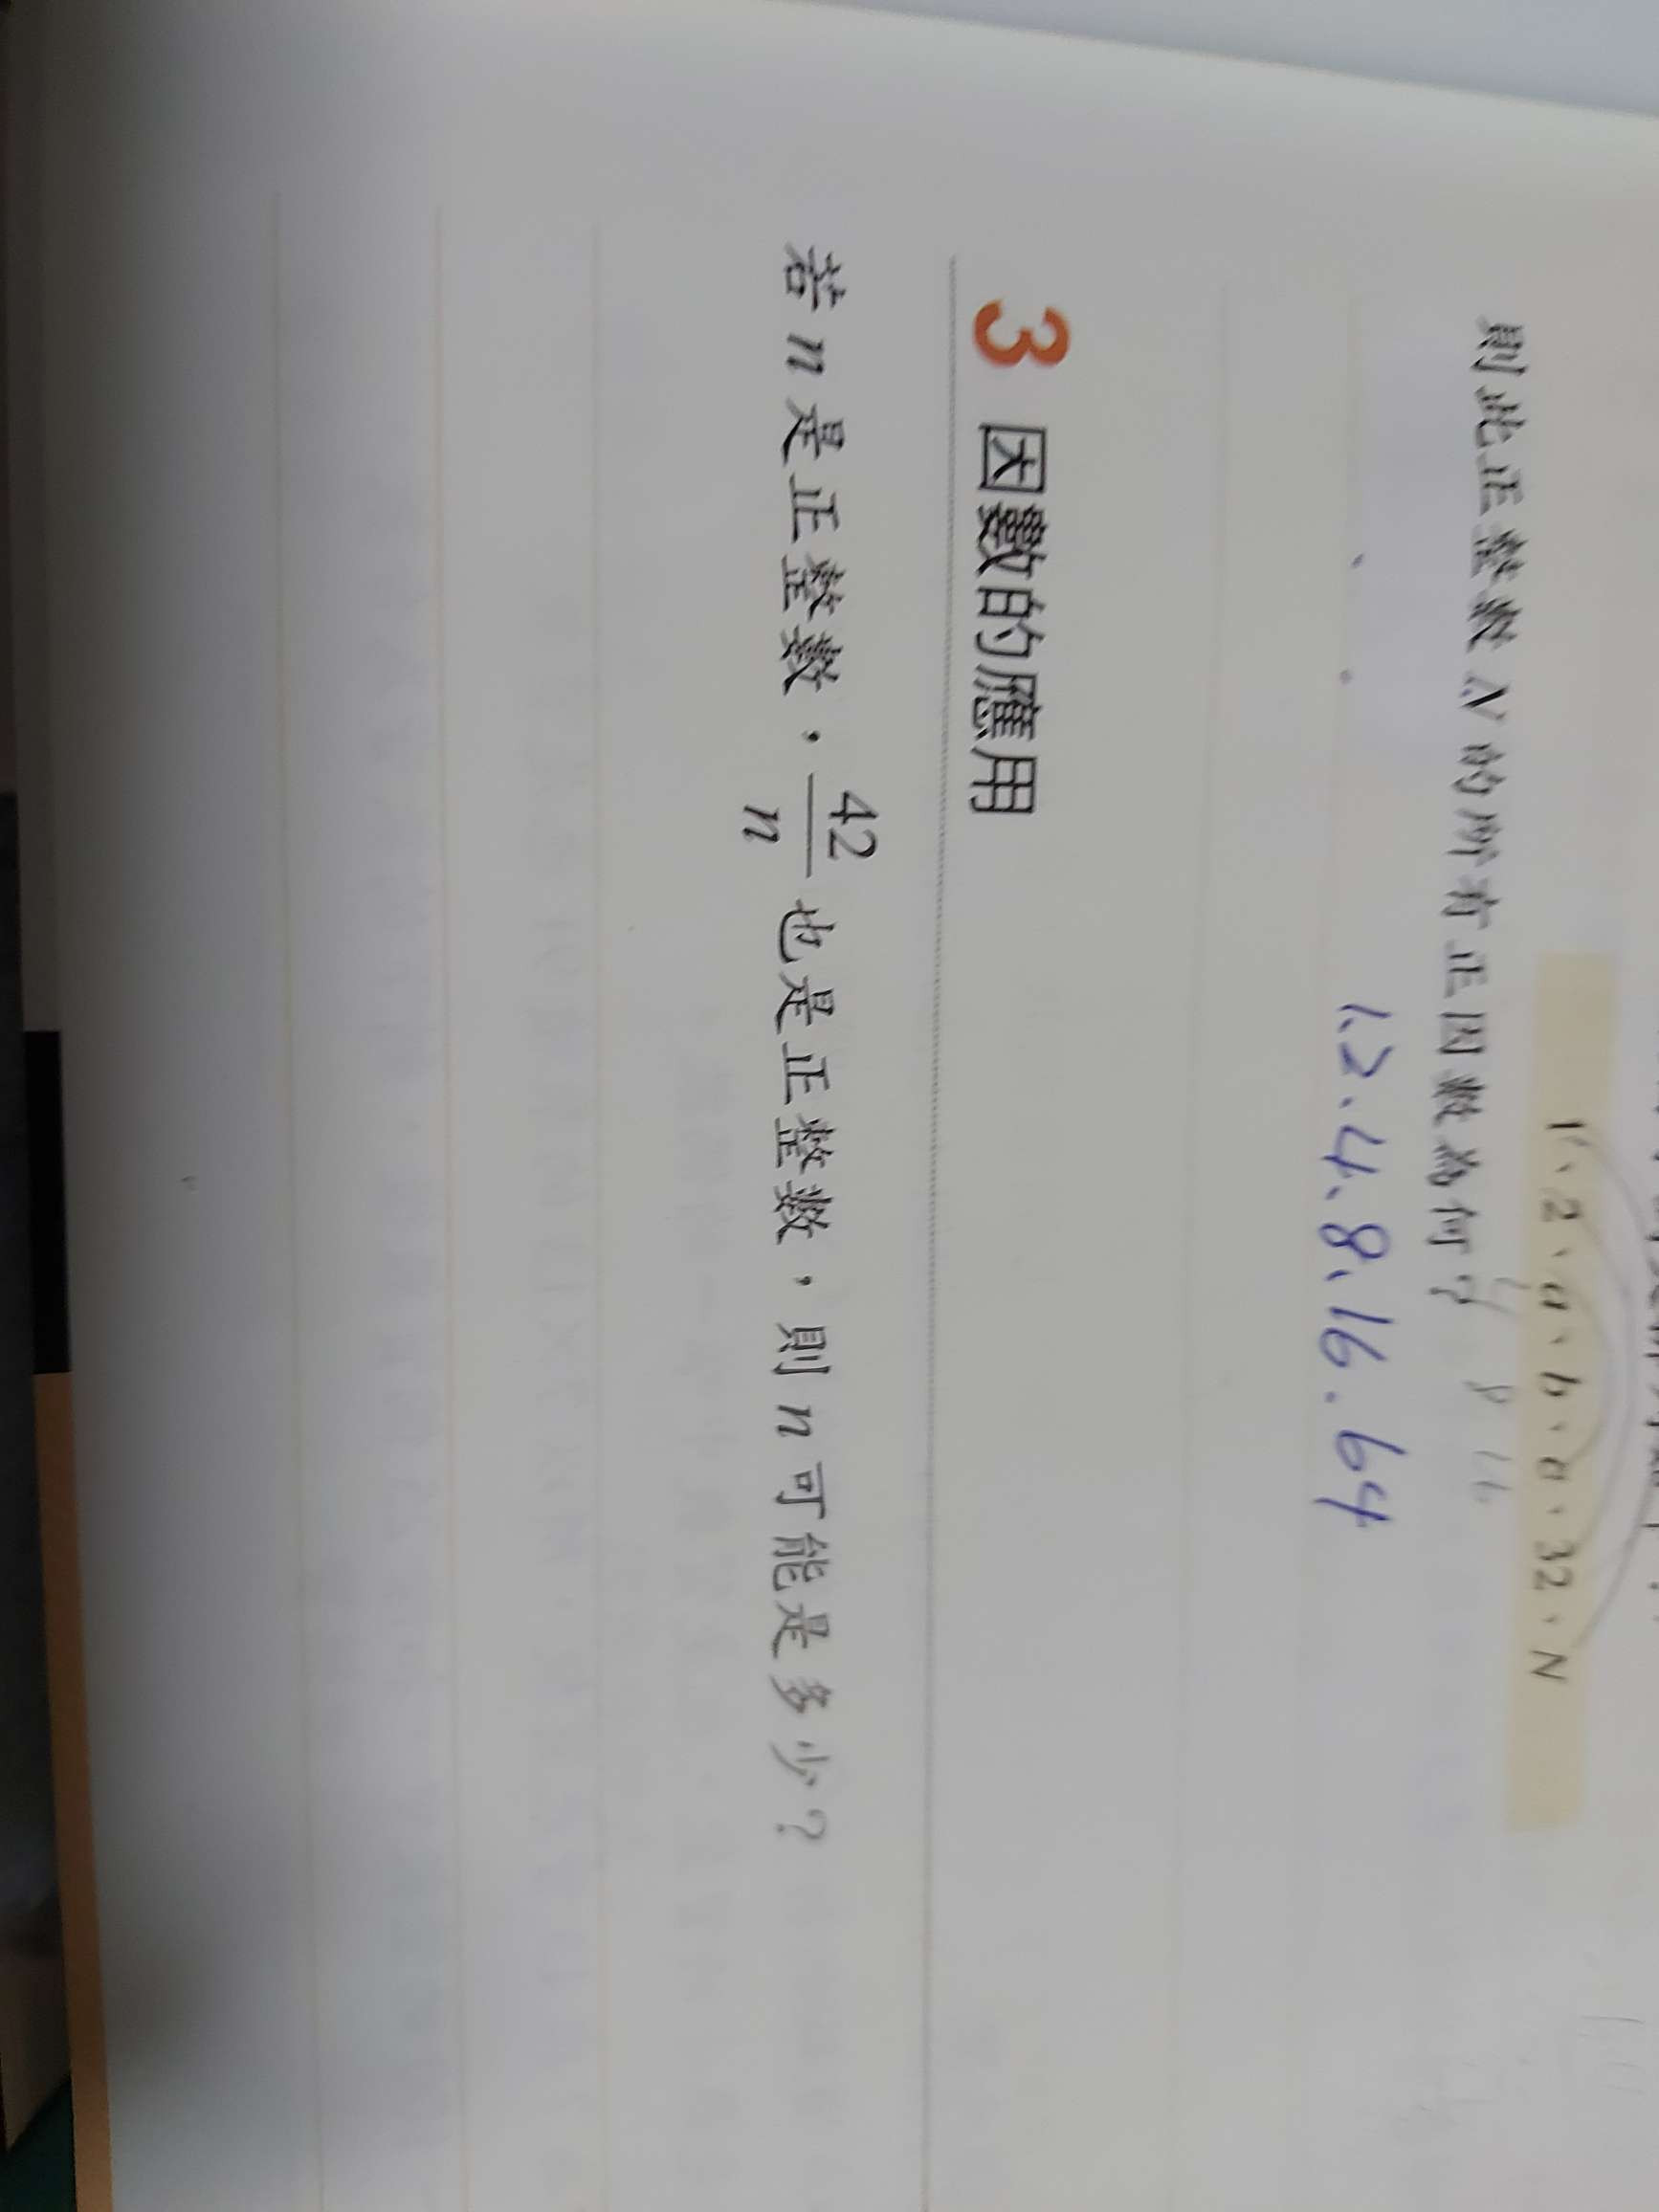 1、2、a、b、c、32、N
則此正整數 N 的所有正因數為何？
1、2、4、8、16、64
3 因數的應用
若 n 是正整數，42/n 也是正整數，則 n 可能是多少？